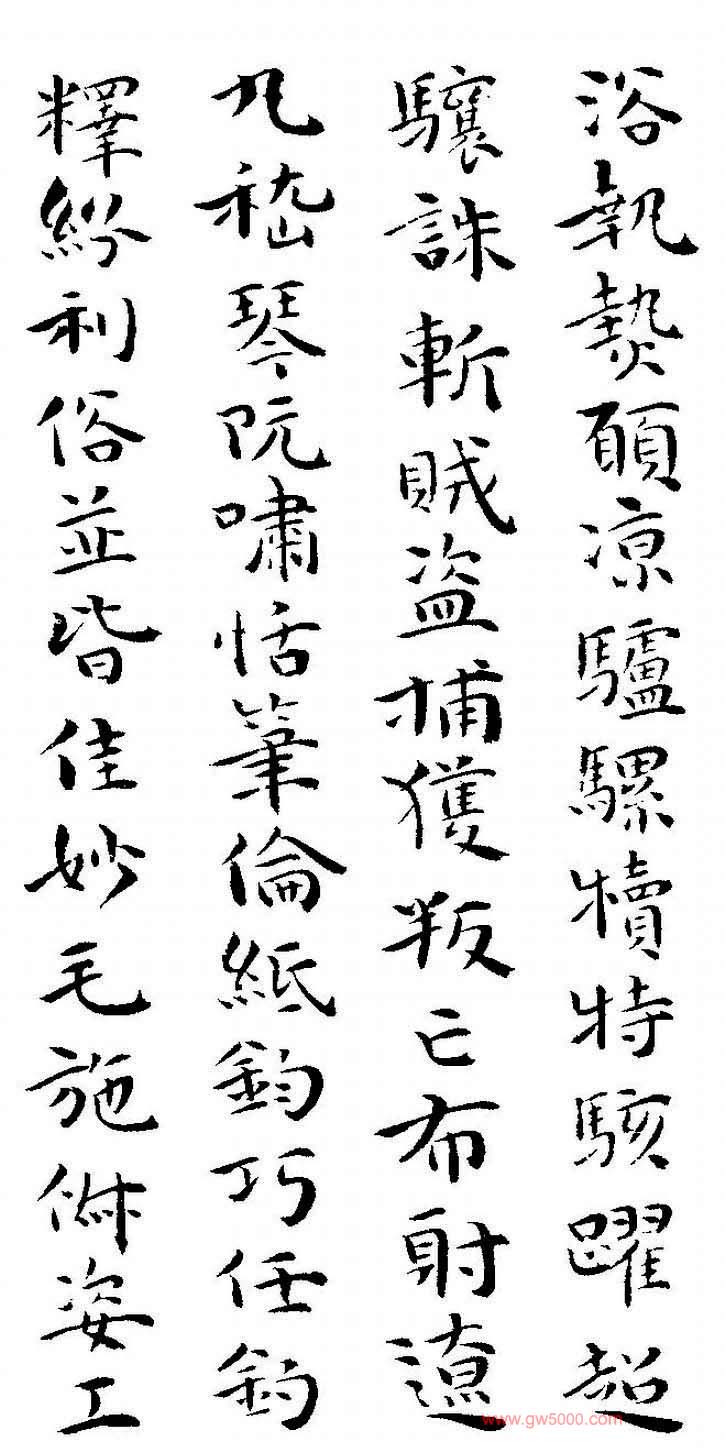 浴執熱願涼驢騾犢特駭躍超
驤誅斬賊盜捕獲叛亡布射遼
丸嵇琴阮嘯恬筆倫紙鈞巧任釣
釋紛利俗並皆佳妙毛施淑姿工
www.gw5000.com